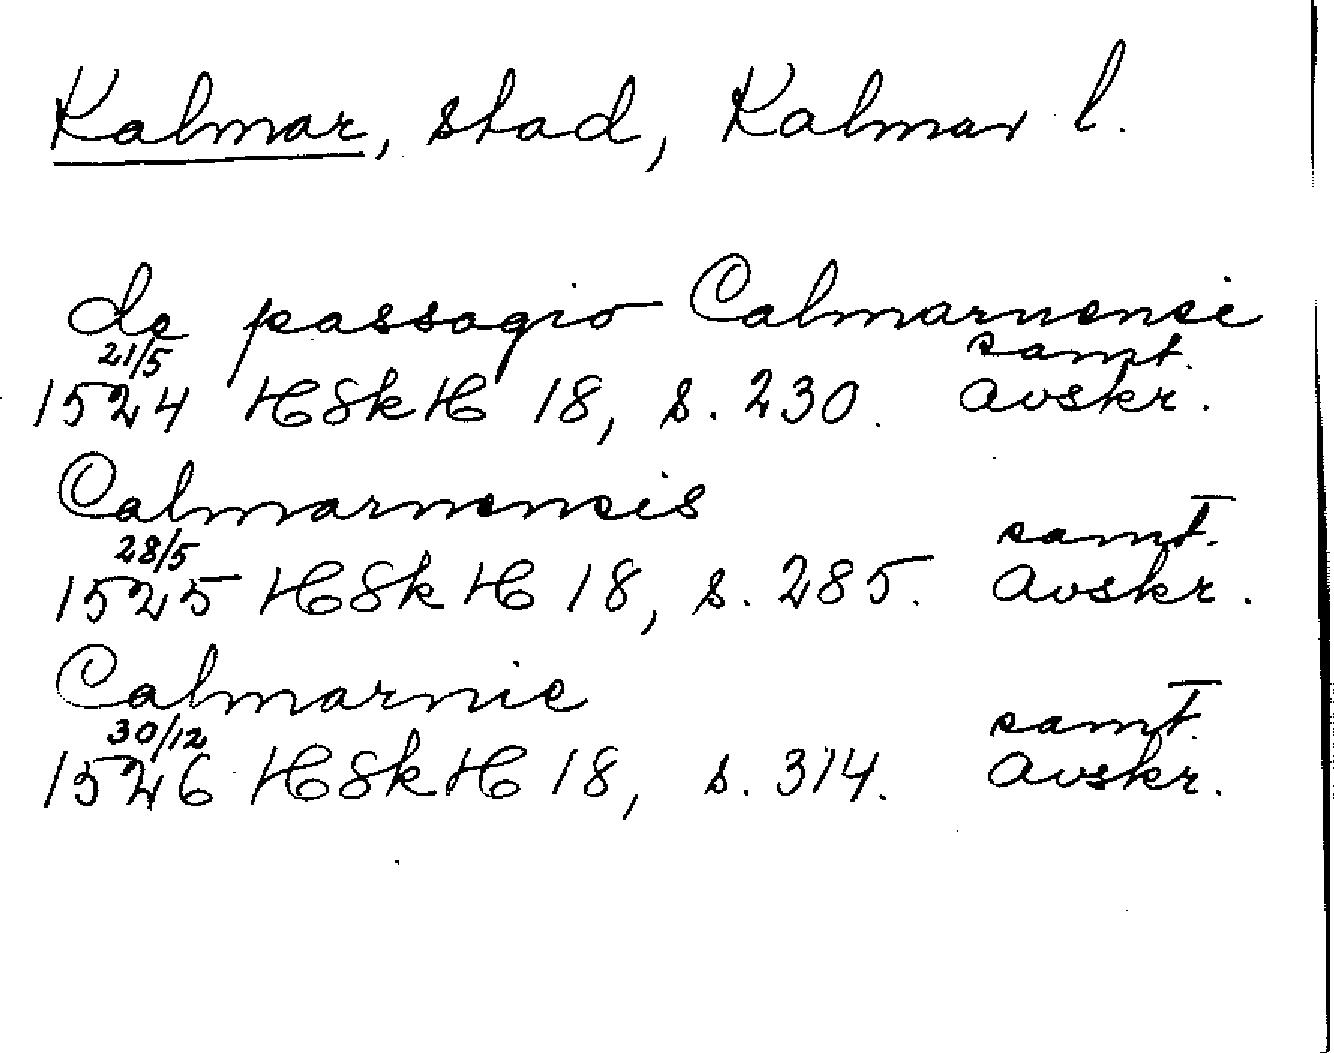 Kalmar, stad, Kalmar l.
de passagio Calmarnensi
21/5 samt.
1524 HSkH 18, s. 230. avskr.
Calmarnensis
28/5 samt.
1525 HSkH 18, s. 285. avskr.
Calmarnie
30/12 samt.
1526 HSkH 18, s. 314. avskr.